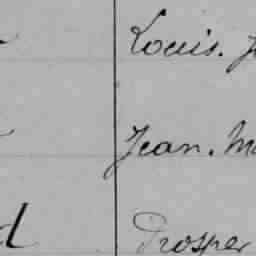 Louis. J
Jean. Ma
d Prosper